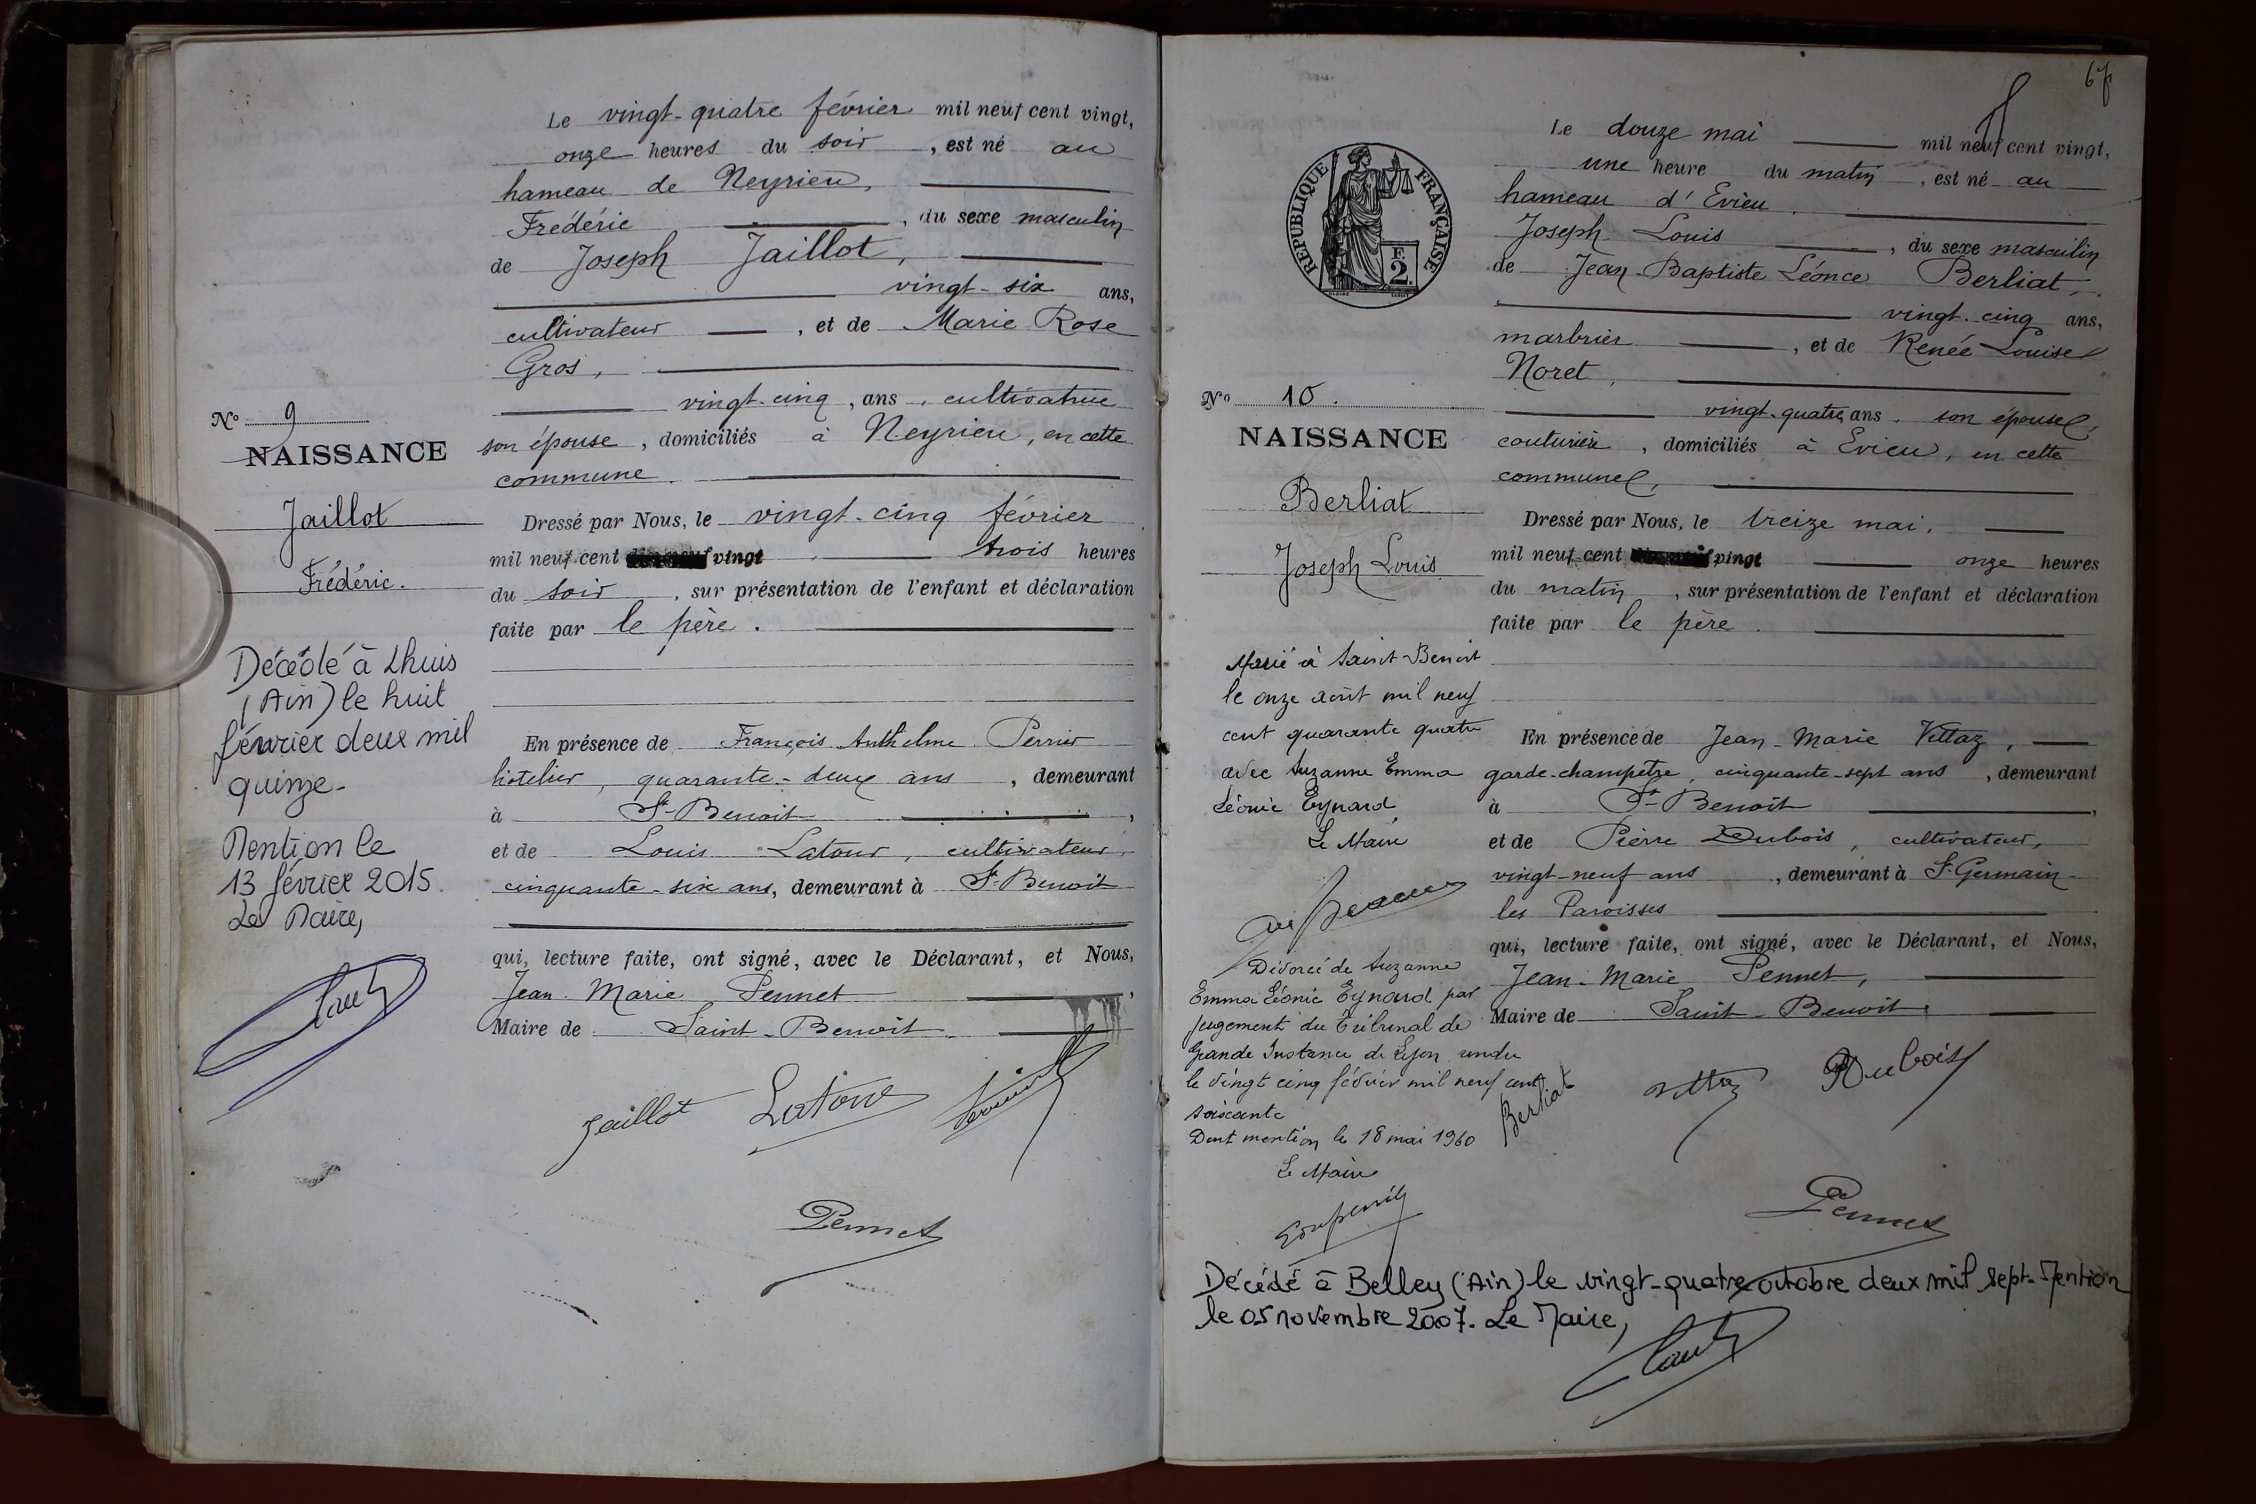 Le vingt-quatre février mil neuf cent vingt,
onze heures du soir, est né au
hameau de Neyrieu,
Frédéric, du sexe masculin
de Joseph Jaillot,
vingt-six ans,
cultivateur, et de Marie Rose
Gros,
vingt-cinq, ans, cultivatrice
son épouse, domiciliés à Neyrieu, en cette
commune.
Dressé par Nous, le vingt-cinq février
mil neuf cent vingt, trois heures
du soir, sur présentation de l'enfant et déclaration
faite par le père.
En présence de François Anthelme Perrier
hôtelier, quarante-deux ans, demeurant
à St-Benoit,
et de Louis Latour, cultivateur,
cinquante-six ans, demeurant à St-Benoit
qui, lecture faite, ont signé, avec le Déclarant, et Nous,
Jean-Marie Pennet,
Maire de Saint-Benoit
Jaillot Latour
Pennet
No 9
NAISSANCE
Jaillot
Frédéric.
Décédé à Lhuis
(Ain) le huit
février deux mil
quinze-
Mention le
13 février 2015.
Le Maire,
67
REPUBLIQUE FRANÇAISE
F.
2.
Le douze mai mil neuf cent vingt,
une heure du matin, est né au
hameau d'Evieu,
Joseph Louis, du sexe masculin
de Jean-Baptiste Léonce Berliat,
vingt-cinq ans,
marbrier, et de Renée Louise
Noret,
vingt-quatre ans, son épouse,
couturière, domiciliés à Evieu, en cette
commune,
Dressé par Nous, le treize mai,
mil neuf cent vingt onze heures
du matin, sur présentation de l'enfant et déclaration
faite par le père.
En présence de Jean-Marie Vettaz,
garde-champêtre, cinquante-sept ans, demeurant
à St-Benoit,
et de Pierre Dubois, cultivateur,
vingt-neuf ans, demeurant à St-Germain-
les Paroisses
qui, lecture faite, ont signé, avec le Déclarant, et Nous,
Jean-Marie Pennet,
Maire de Saint-Benoit.
Berliat PDubois
Pennet
No 10.
NAISSANCE
Berliat
Joseph Louis
Marié à Saint-Benoit
le onze août mil neuf
cent quarante quatre
avec Suzanne Emma
Léonie Eynard
Le Maire
Divorcé de Suzanne
Emma Léonie Eynard par
jugement du Tribunal de
Grande Instance de Lyon rendu
le vingt cinq février mil neuf cent
soixante
Dont mention le 18 mai 1960
Le Maire
Décédé à Belley (Ain) le vingt-quatre octobre deux mil sept- Mention
le 05 novembre 2007. Le Maire,